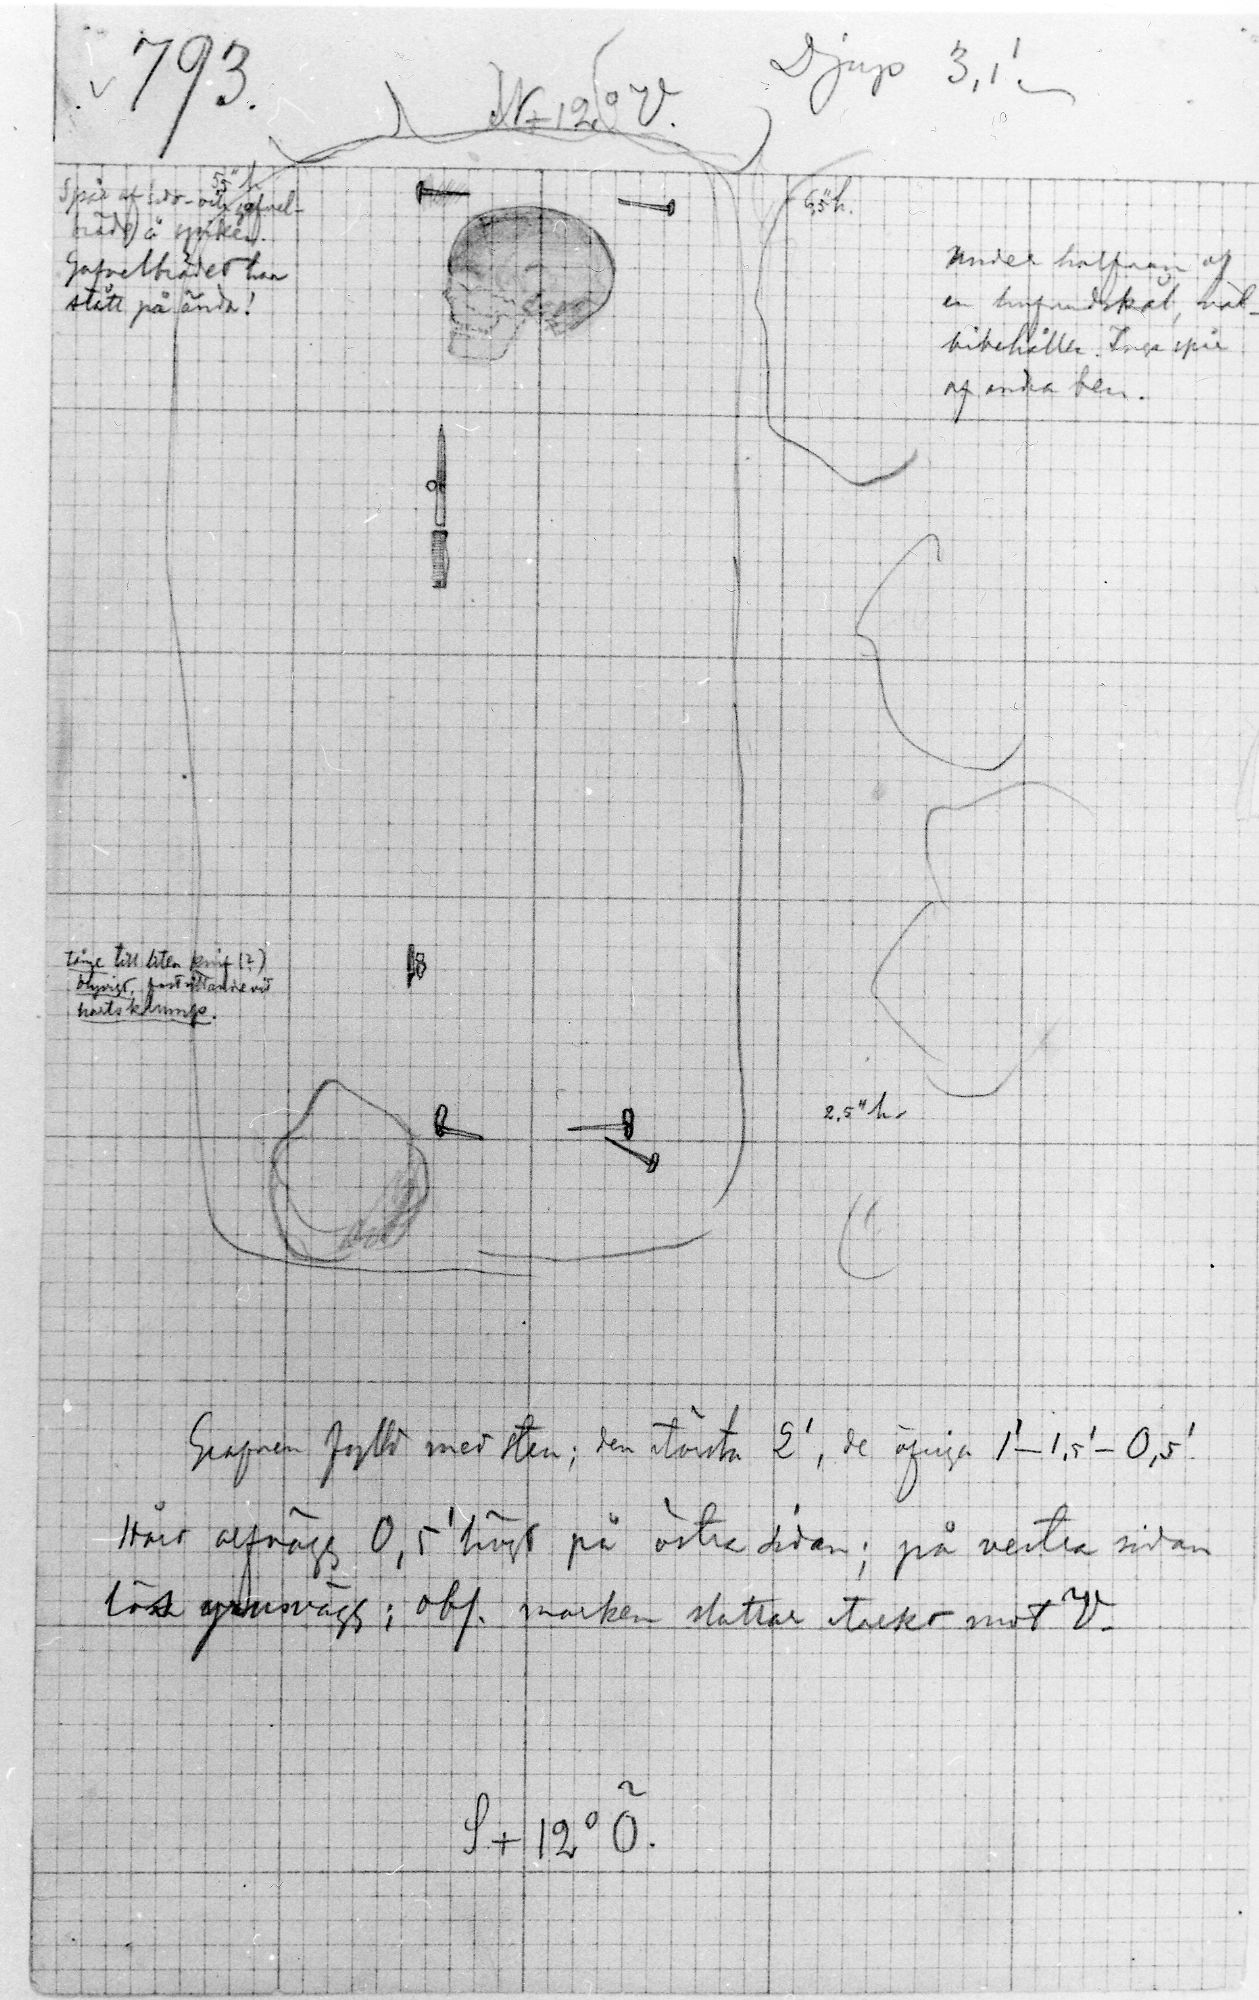 793.
N + 12° V.
Djup 3,1'
5,5" h.
Spår af sido- och gafvel-
bräde å spiken.
Gafvelbrädet har
stått på ända!
6,5" h.
Under halfvan af
en hufvudskål, väl-
bibehållen. Inga spår
af andra ben.
Tånge till liten knif (?)
hartsklump.
2,5" h.
Grafven fylld med sten; den största 2', de öfriga 1' – 1,5' – 0,5'.
Hård alfvägg 0,5' högt på östra sidan; på vestra sidan
lösa grusvägg; obs. marken sluttar starkt mot V.
S + 12° Ö.